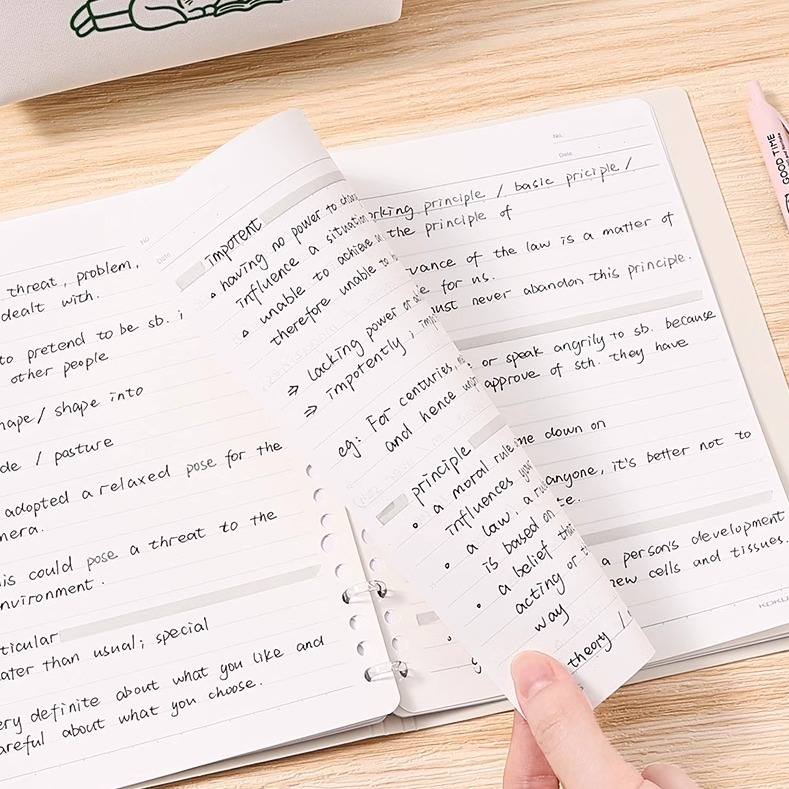 threat, problem,
dealt with.
to pretend to be sb. i
other people
shape/ shape into
/ pasture
adopted a relaxed pose for the
this could pose a threat to the
environment.
ticular
ater than usual; special
ery definite about what you like and
areful about what you choose.
No
Date
impotent
having no power to
influence a situation
unable to achieve
therefore unable to
⇒ lacking power or
⇒ impotently ;
eg: For centuries,
and hence
principle
a moral rule
influences
a law, a
is based on
a belief
acting or
way
theory /
No.
Date
orking principle / basic priciple /
the principle of
vance of the law is a matter of
for us.
ust never abandon this principle.
or speak angrily to sb. because
approve of sth. they have
me down on
anyone, it's better not to
a person's development
new cells and tissues.
GOOD TIME